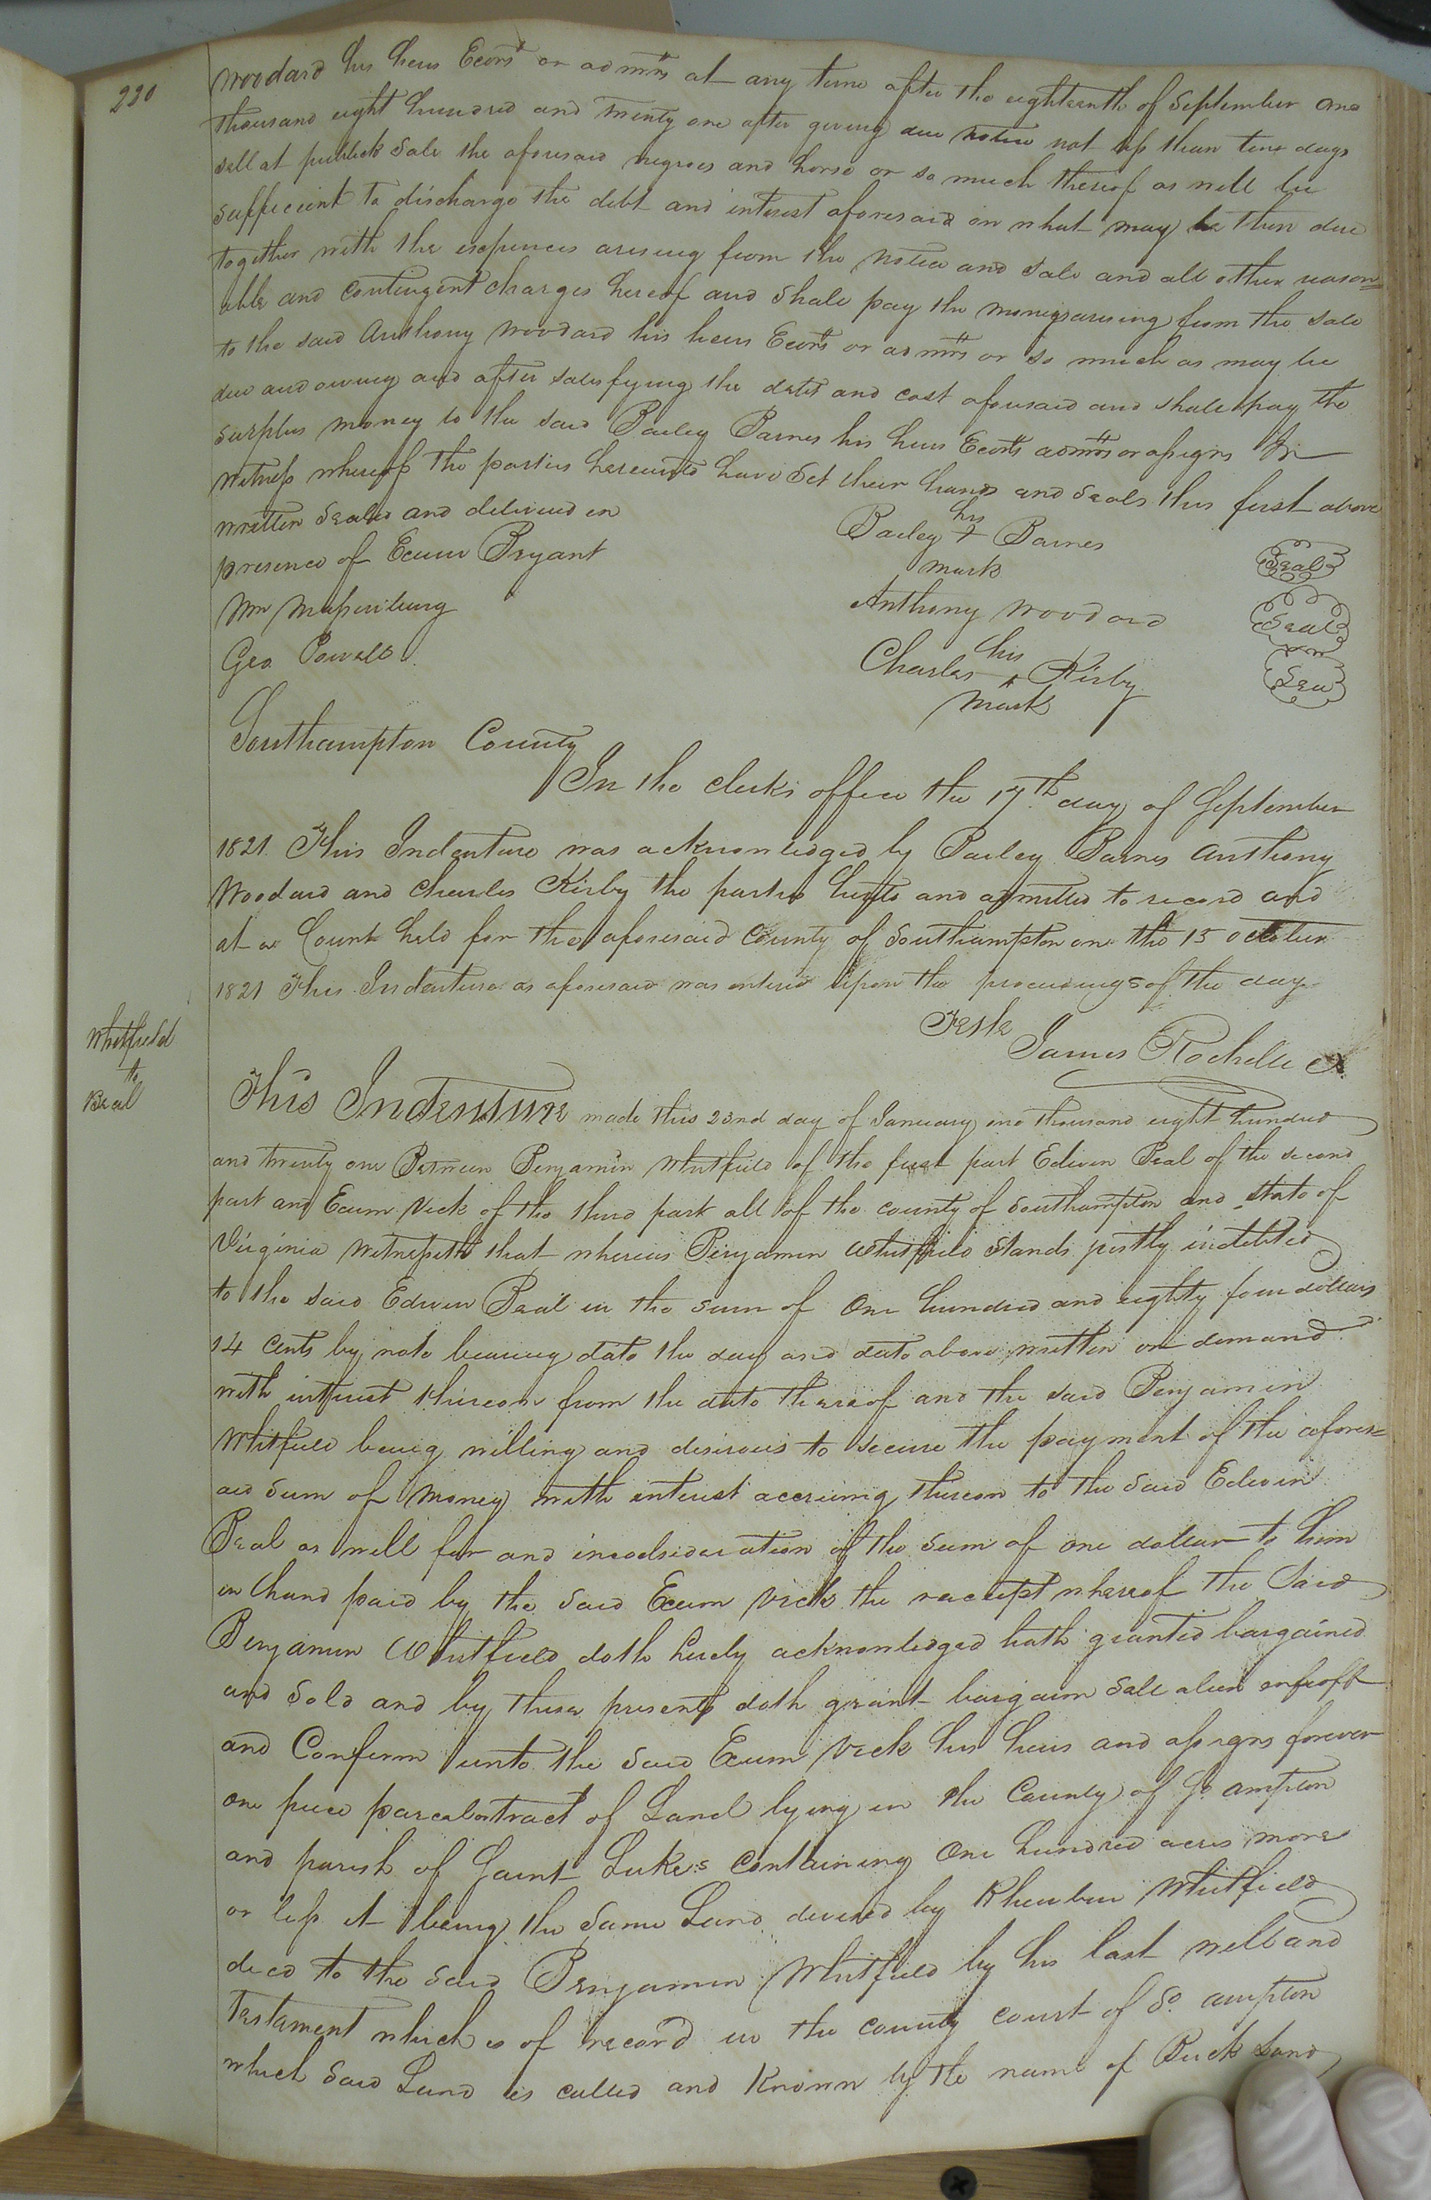 220
Woodard his heirs Ecors or admrs at any time after the eighteenth of September one
thousand eight hundred and twenty one after giving due notice not less than tenn days
sell at publick Sale the aforesaid negroes and horse or so much thereof as will be
sufficient to discharge the debt and interest aforesaid on what may be then due
together with the expences arising from the notice and sale and all other reason=
able and contingent charges hereof and shall pay the moneys arising from the sale
to the said Anthony Woodard his heirs Ecors or admrs or so much as may be
due and owing and after satisfying the debts and cost aforesaid and shall pay the
surplus money to the said Bailey Barnes his heirs Ecors admrs or assigns In
witness whereof the parties hereunto have set their hands and seals this first above
written Sealed and delivered in
presence of Exum Bryant
Wm Massenburg
Geo. Powell
Bailey his + mark Barnes Seal
Anthony Woodard Seal
Charles his + mark Kirby Seal
Southampton County
In the clerks office the 17th day of September
1821. This Indenture was acknowledged by Bailey Barnes Anthony
Woodard and Charles Kirby the parties hereto and admitted to record and
at a Court held for the aforesaid County of Southampton on the 15 October
1821 This Indenture as aforesaid was entered upon the proceedings of the day
Teste
James Rochelle C
Whitfield
to
Beal
This Indenture made this 22nd day of January one thousand eight hundred
and twenty one Between Benjamin Whitfield of the first part Edwin Beal of the second
part and Exum Vick of the third part all of the county of Southampton and state of
Virginia Witnesseth that whereas Benjamin Whitfield Stands justly indebted
to the said Edwin Beal in the sum of One hundred and eighty four dollars
14 cents by note bearing date the day and date above written on demand
with intrust thereon from the date thereof and the said Benjamin
Whitfield being willing and desirous to secure the payment of the afores=
aid sum of money with interest accruing thereon to the said Edwin
Beal as well for and inconsideration of the sum of one dollar to him
in hand paid by the said Exum Vick the receipt whereof the said
Benjamin Whitfield doth hereby acknowledged hath granted bargained
and sold and by these presents doth grant bargain Sell alien enfeoff
and Confirm unto the said Exum Vick his heirs and assigns forever
one piece parcel or tract of Land lying in the County of So ampton
and parish of Saint Lukes containing One hundred acres more
or less it being the same Land devised by Rheuben Whitfield
decd to the said Benjamin Whitfield by his last will and
Testament which is of record in the county court of So. ampton
which said Land is called and known by the name of Buck Land